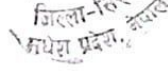 जिल्ला-सि
मधेश प्रदेश, नेपाल